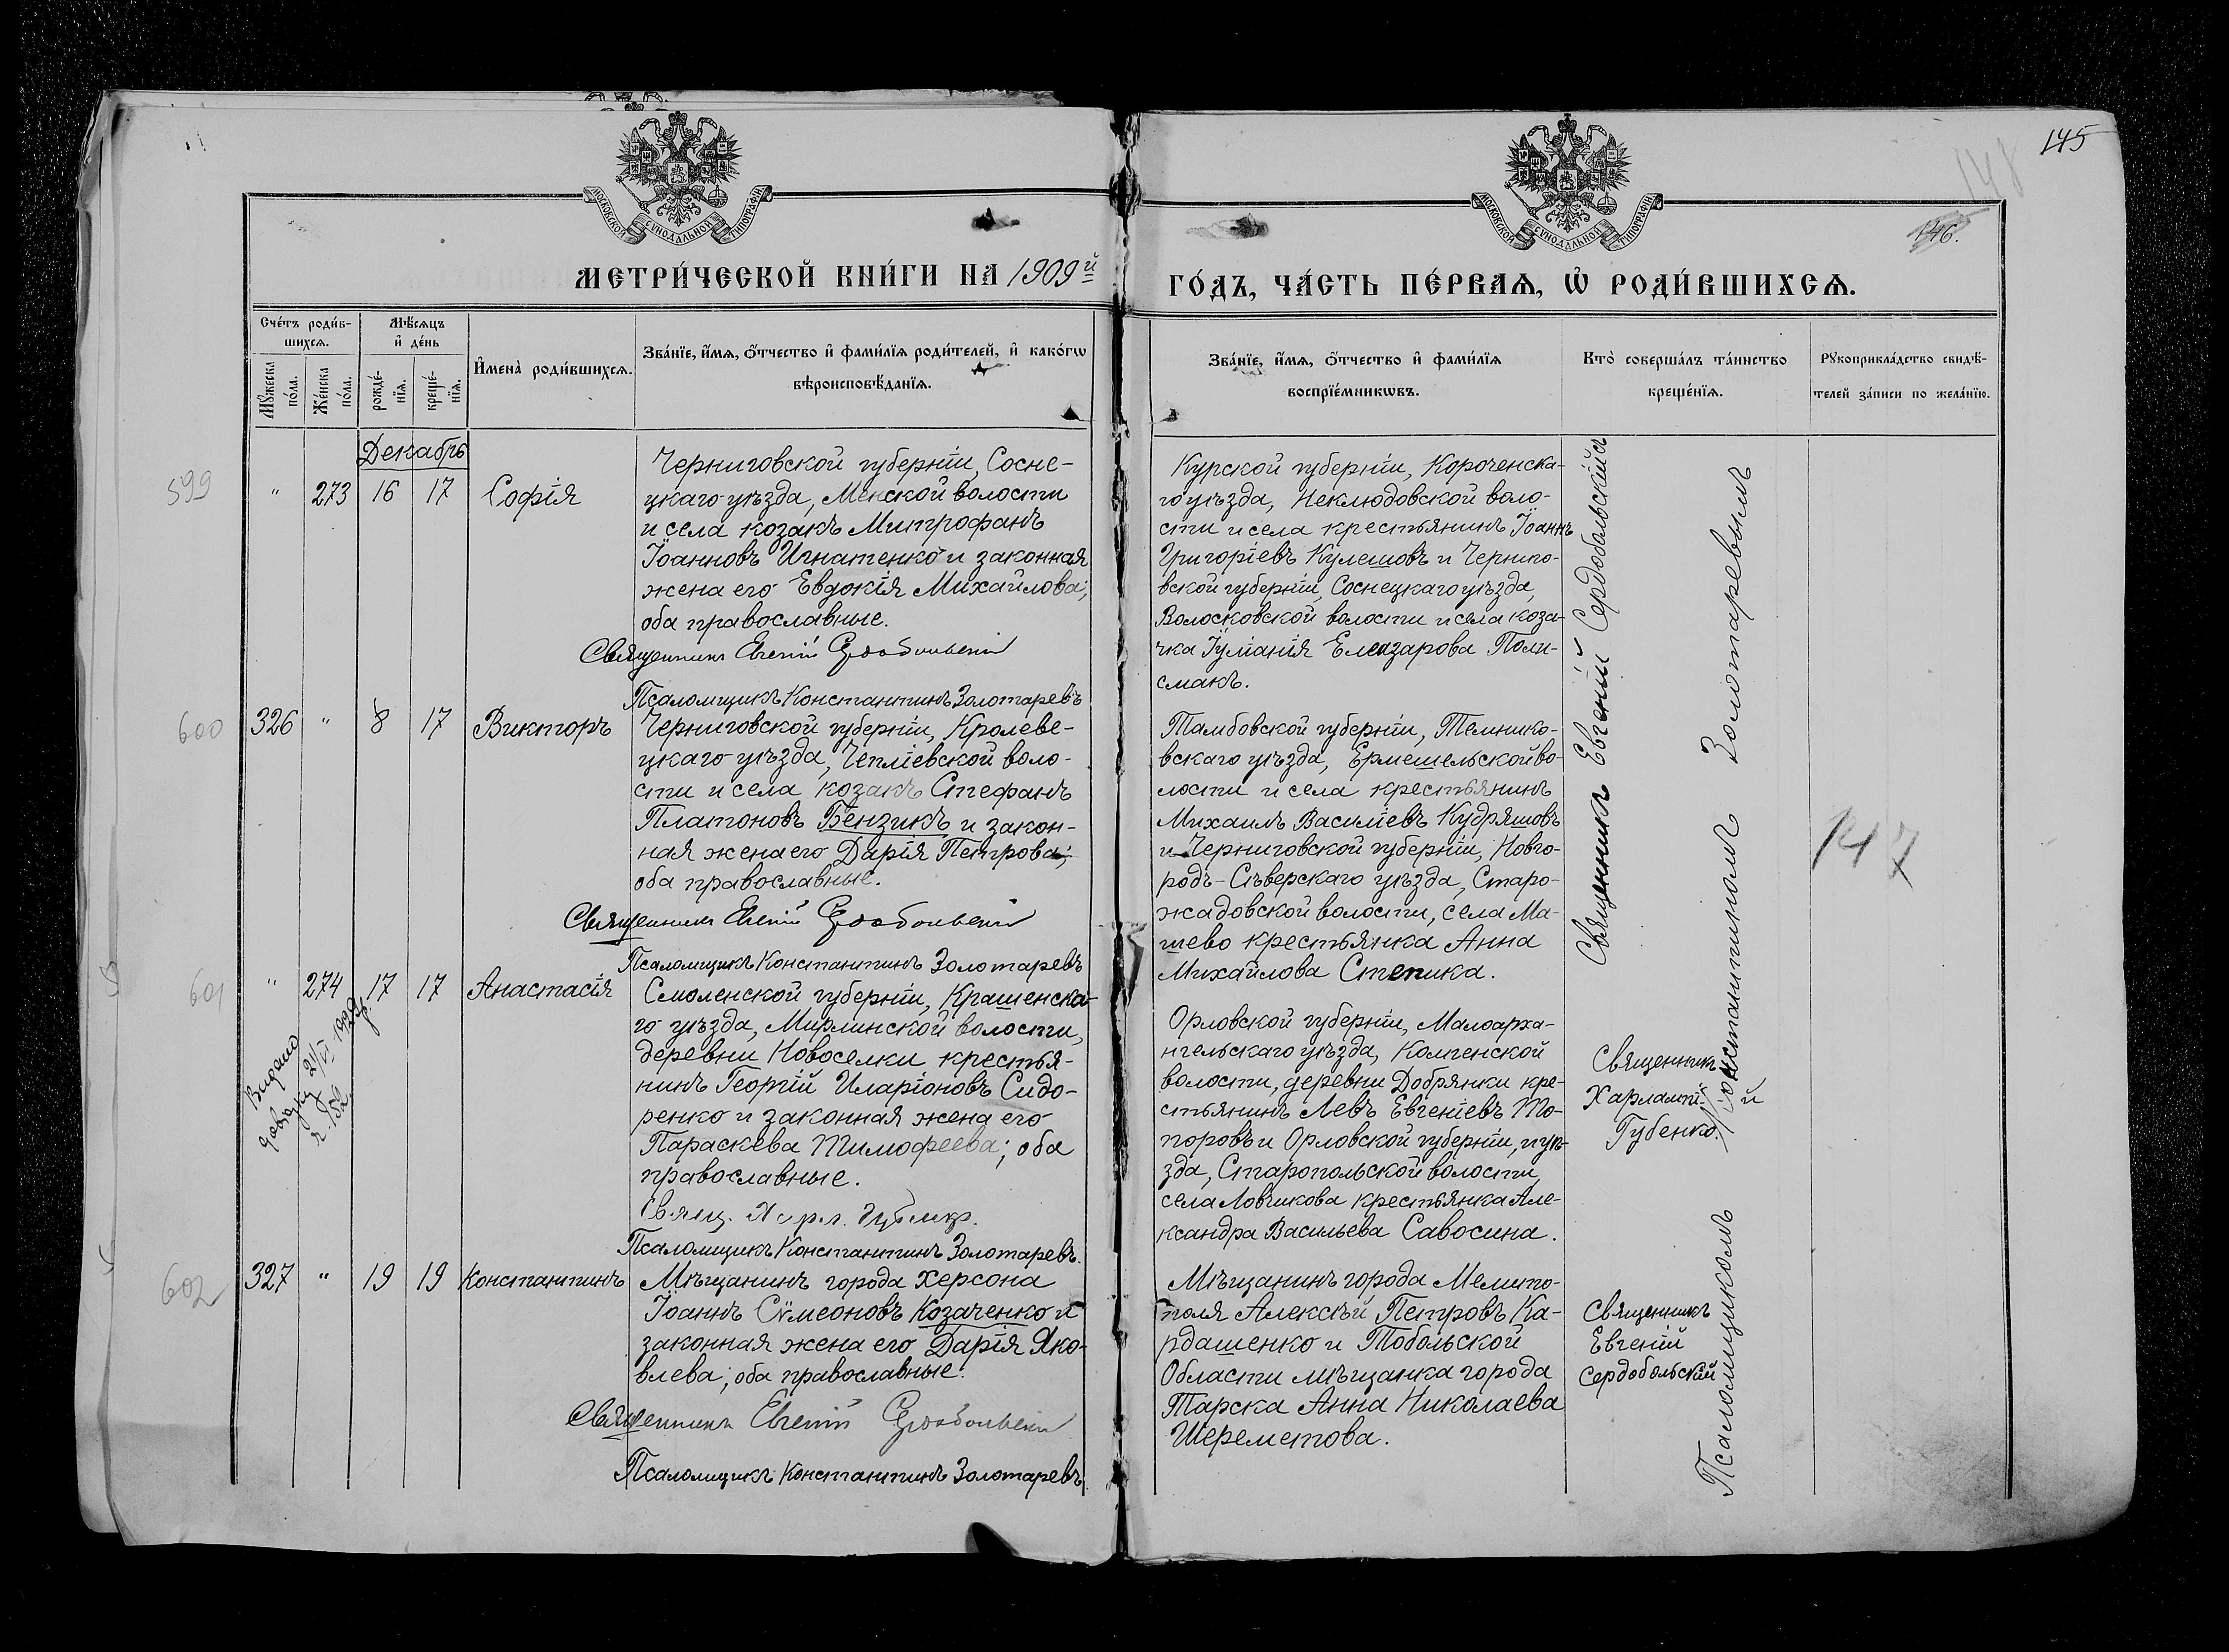 145
148
146.
МОСКОВСКОЙ СѴНОДАЛЬНОЙ ТИПОГРАФІИ
МОСКОВСКОЙ СѴНОДАЛЬНОЙ ТИПОГРАФІИ
МЕТРИ́ЧЕСКОЙ КНИ́ГИ НА 1909й
ГО́ДЪ, ЧА́СТЬ ПЕ́РВАѦ, Ѡ҆ РОДИ́ВШИХСѦ.
Сче́тъ роди́в-
шихсѧ.
Мꙋ́жеска по́ла.
Же́нска по́ла.
Мѣ́сѧцъ
и҆ де́нь
рожде́-
нїѧ.
креще́-
нїѧ.
И҆мена̀ роди́вшихсѧ.
Зва́нїе, и҆́мѧ, ѻ҆́тчество и҆ фами́лїѧ роди́телей, и҆ како́гѡ
вѣроисповѣ́данїѧ.
Зва́нїе, и҆́мѧ, ѻ҆́тчество и҆ фами́лїѧ
воспрїе́мникѡвъ.
Кто̀ соверша́лъ та́инство
креще́нїѧ.
Рꙋкоприкла́дство свидѣ́-
телей за́писи по жела́нїю.
Декабрь
599
" 273 16 17 Софія
Черниговской губерніи, Сосне-
цкаго уѣзда, Менской волости
и села козакъ Митрофанъ
Іоанновъ Игнатенко и законная
жена его Евдокія Михайлова;
оба православные.
Священникъ Евгеній Сердобольскій
Псаломщикъ Константинъ Золотаревъ
Курской губерніи, Короченска-
го уѣзда, Неклюдовской воло-
сти и села крестьянинъ Іоаннъ
Григоріевъ Кулешовъ и Чернито-
вской губерніи, Соснецкаго уѣзда,
Волосковской волости и села коза-
чка Іуліанія Елеазарова Поли-
смакъ.
600
326 " 8 17 Викторъ
Черниговской губерніи, Кролеве-
цкаго уѣзда, Чепліевской воло-
сти и села козакъ Стефанъ
Платоновъ Бензикъ и закон-
ная жена его Дарія Петрова;
оба православные.
Священникъ Евгеній Сердобольскій
Псаломщикъ Константинъ Золотаревъ
Тамбовской губерніи, Темнико-
вскаго уѣзда, Ермешельской во-
лости и села крестьянинъ
Михаилъ Василіевъ Кудряшовъ
и Черниговской губерніи, Новго-
родъ-Сѣверскаго уѣзда, Старо-
жадовской волости, села Ма-
шево крестьянка Анна
Михайлова Степика.
Священникъ Евгеній Сердобольскій
147
601
" 274 17 17 Анастасія
Видано
довідку 21/V 1929 р.
Смоленской губерніи, Крашенска-
го уѣзда, Мирлинской волости,
деревни Новоселки крестья-
нинъ Георгій Иларіоновъ Сидо-
ренко и законная жена его
Параскева Тимофеева; оба
православные.
Свящ. Харл. Губенко.
Псаломщикъ Константинъ Золотаревъ.
Орловской губерніи, Малоарха-
нгельскаго уѣзда, Комгенской
волости, деревни Добрянки кре-
стьянинъ Левъ Евгеніевъ То-
поровъ и Орловской губерніи, и уѣ-
зда, Старопольской волости,
села Ловчикова крестьянка Але-
ксандра Васильева Савосина.
Священникъ
Харлампій
Губенко.
и
602
327 " 19 19 Константинъ
Мѣщанинъ города Херсона
Іоаннъ Сѵмеоновъ Козаченко и
законная жена его Дарія Яко-
влева; оба православные.
Священникъ Евгеній Сердобольскій
Псаломщикъ Константинъ Золотаревъ.
Мѣщанинъ города Мелито-
поля Алексѣй Петровъ Ка-
рдашенко и Тобольской
Области мѣщанка города
Тарска Анна Николаева
Шереметова.
Священникъ
Евгеній
Сердобольскій
Псаломщикомъ Константиномъ Золотаревымъ